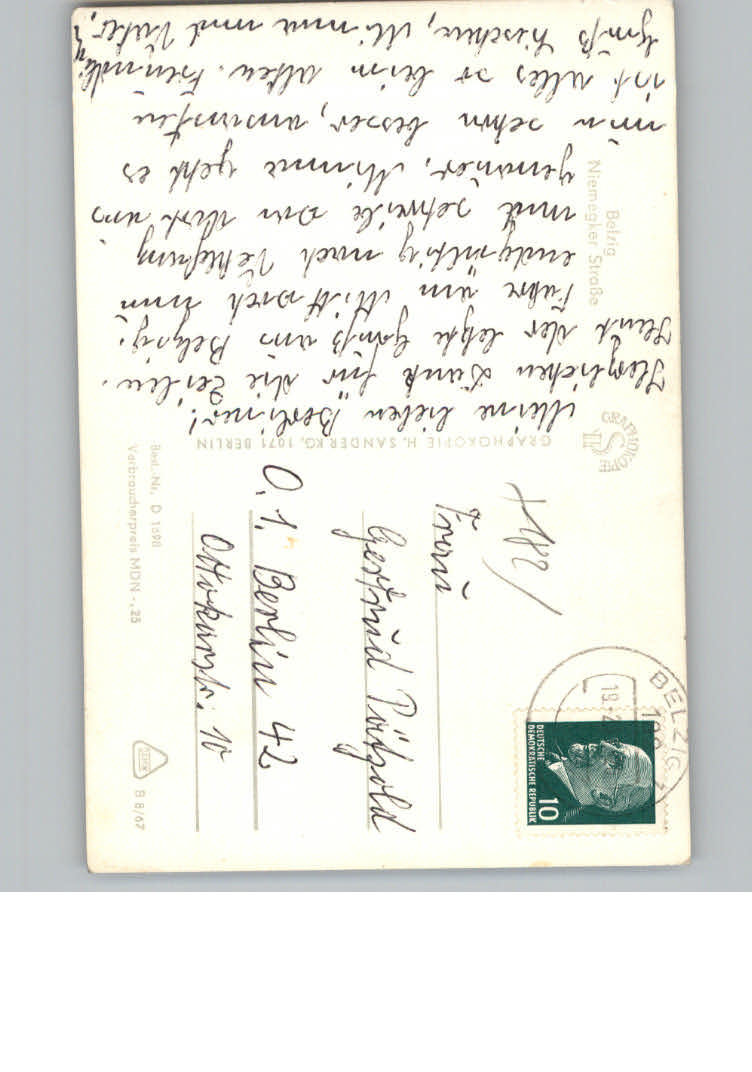 Meine lieben Berliner!
Herzlichen Dank für die Zeilen.
Heut der letzte Gruß aus Belzig.
Fahre am Mittwoch nun
endgültig nach
und schreibe von dort aus
genauer. Mimme geht es
nun schon besser, ansonsten
ist alles so beim alten. Freundl.
Gruß Lieschen, Mimme und Vater
Belzig
Niemegker Straße
GRAPHOKOPIE
GRAPHOKOPIE H. SANDER KG, 1071 BERLIN
Best.-Nr. D 1698
Verbraucherpreis MDN -,25
B 8/67
Frau
Gertrud Pätzold
O. 1. Berlin 42
Ottokarstr. 10
BELZIG
19.2
DEUTSCHE
DEMOKRATISCHE REPUBLIK
10